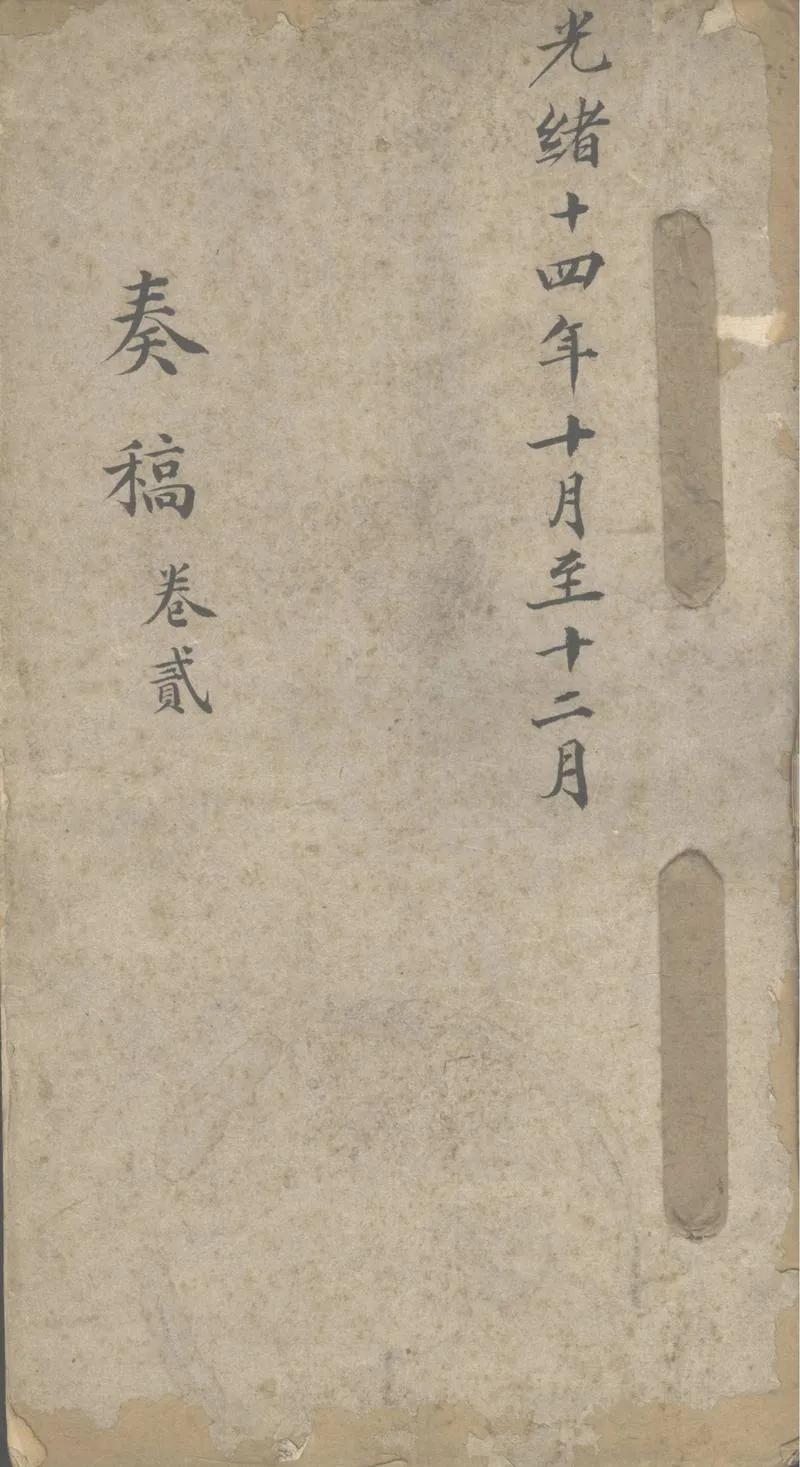 光緒十四年十月至十二月
奏稿 卷貳